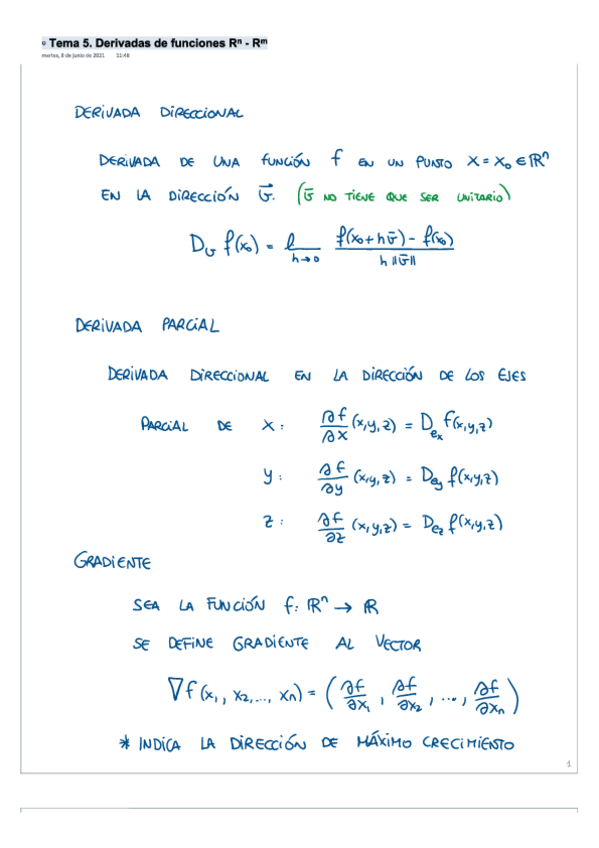 Tema 5. Derivadas de funciones Rⁿ - Rᵐ
martes, 8 de junio de 2021 11:46
DERIVADA DIRECCIONAL
DERIVADA DE UNA FUNCIÓN f EN UN PUNTO x = x₀ ∈ ℝⁿ
EN LA DIRECCIÓN v⃗. (v̄ NO TIENE QUE SER UNITARIO)
D_v f(x₀) = l_{h→0} (f(x₀+hv̄) - f(x₀)) / (h ||v̄||)
DERIVADA PARCIAL
DERIVADA DIRECCIONAL EN LA DIRECCIÓN DE LOS EJES
PARCIAL DE x: ∂f/∂x (x,y,z) = D_{e_x} f(x,y,z)
y: ∂f/∂y (x,y,z) = D_{e_y} f(x,y,z)
z: ∂f/∂z (x,y,z) = D_{e_z} f(x,y,z)
GRADIENTE
SEA LA FUNCIÓN f: ℝⁿ → ℝ
SE DEFINE GRADIENTE AL VECTOR
∇f(x₁, x₂,..., xₙ) = (∂f/∂x₁, ∂f/∂x₂, ..., ∂f/∂xₙ)
* INDICA LA DIRECCIÓN DE MÁXIMO CRECIMIENTO
1